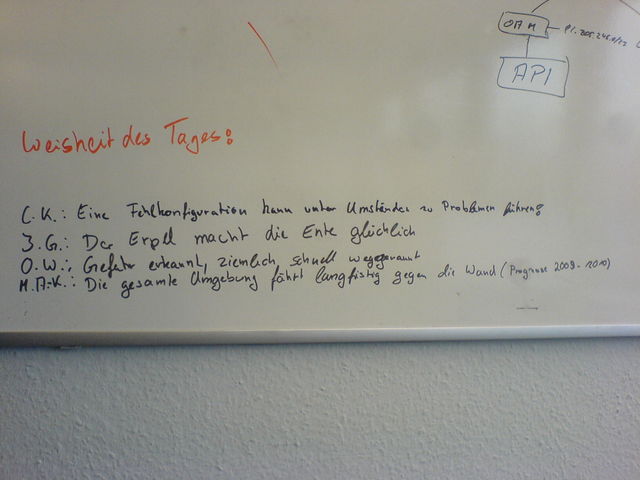 OAM
API
Weisheit des Tages:
C.K.: Eine Fehlkonfiguration kann unter Umständen zu Problemen führen!
J.G.: Der Erpel macht die Ente glücklich
O.W.: Gefahr erkannt, ziemlich schnell weggerannt
M.A.-K.: Die gesamte Umgebung fährt langfristig gegen die Wand (Prognose 2009-2010)